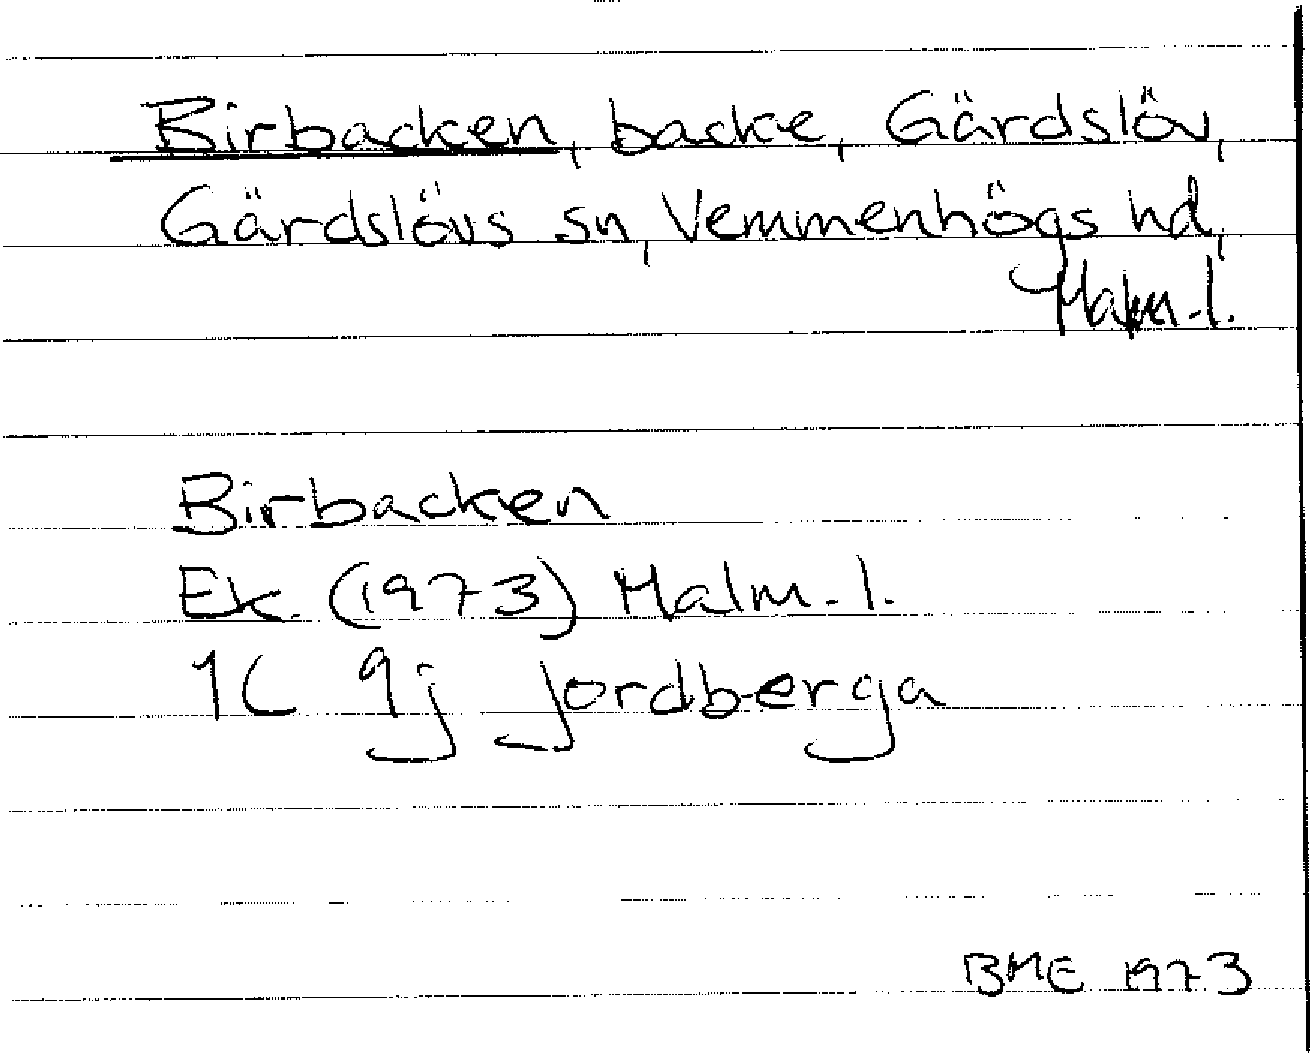 Birbacken, backe, Gärdslöv,
Gärdslövs sn, Vemmenhögs hd,
Malm.l.
Birbacken
Ek. (1973) Malm.l.
1C 9j Jordberga
BME 1973